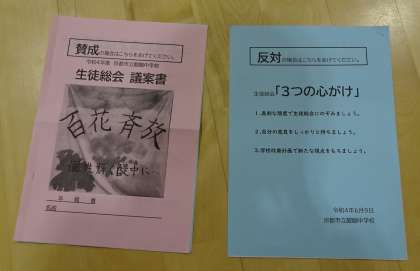 賛成の場合はこちらをあげてください。
令和4年度 京都市立 中学校
生徒総会 議案書
百花斉放
年 組 番
名前
反対の場合はこちらをあげてください。
生徒総会「3つの心がけ」
1.真剣な態度で生徒総会にのぞみましょう。
2.自分の意見をしっかりと持ちましょう。
3.学校改善計画で新たな視点をもちましょう。
令和4年6月9日
京都市立 中学校